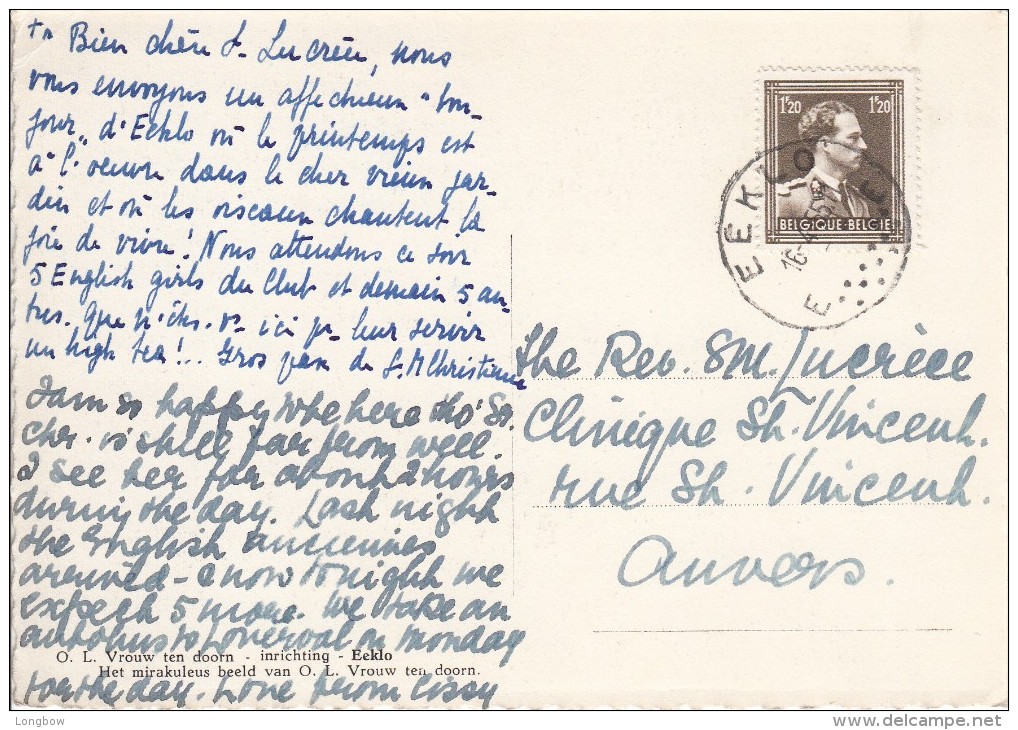 + Bien chère Sr Lucrèce, nous
vous envoyons un affectueux "bon-
jour" d'Eeklo où le printemps est
à l'oeuvre dans le cher vieux jar-
din et où les oiseaux chantent la
joie de vivre! Nous attendons ce soir
5 English girls du Club et demain 5 au-
tres. Que n'êtes-vs ici pr leur servir
un high tea!... Gros de S. M Christiane
I am so happy to be here tho' Sr.
Chr. is still far from well.
I see her for about 2 hours
during the day. Last night
the English anciennes
arrived - & now tonight we
expect 5 more. We take an
autobus to on Monday
for the day. Love from Cissy
O. L. Vrouw ten doorn - inrichting - Eeklo
Het mirakuleus beeld van O. L. Vrouw ten doorn.
1F20 1F20
BELGIQUE-BELGIE
EEKLO
The Rev. SM. Lucrèce
Clinique St. Vincent.
rue St. Vincent.
Anvers.
Longbow
http://www.delcampe.net